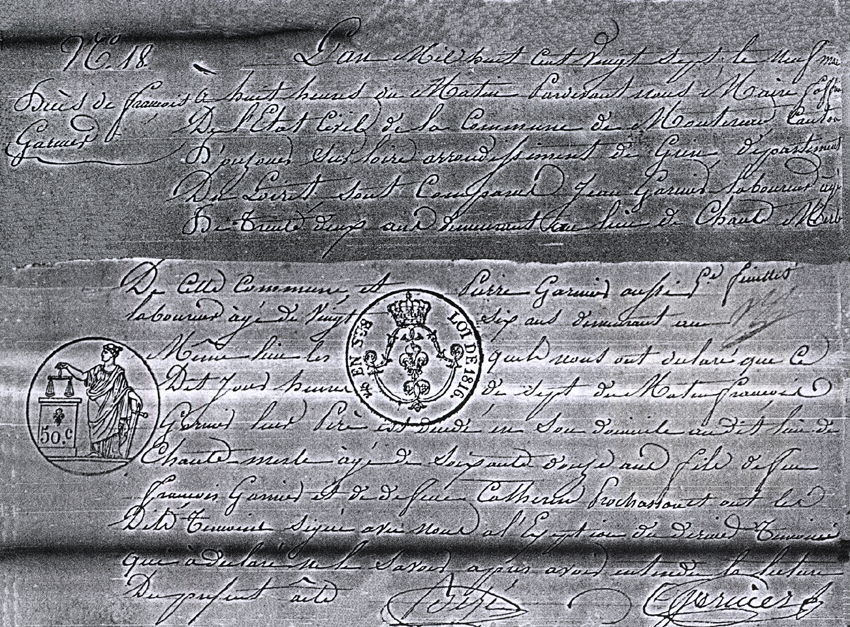 N° 18.
Décès de françois
Garnier
L'an Mil huit Cent Vingt Sept le Neuf mai
à huit heures du Matin Pardevant nous Maire
De l'Etat Civil de la Commune de Canton
D'ouzouer sur loire arrondissement de Gien, département
Du Loiret sont Comparus Jean Garnier laboureur agé
De Trente deux ans demeurant au lieu de Chante Merle
De cette Commune et Pierre Garnier aussi
laboureur âgé de Vingt six ans demeurant au
Même lieu les quels nous ont déclaré que ce
Dit Jour heure de sept du Matin françois
Garnier leur Père est décédé en son domicile audit lieu de
Chante merle âgé de Soixante douze ans fils de feu
françois Garnier et de defunte Catherine ont les
Dits Temoins signé avec nous a l'Exception du dernier Temoin
qui à déclaré ne le Savoir après avoir entendu la lecture
Du présent acte
Garnier
TIMBRE
LOI DE 1816.
50.c